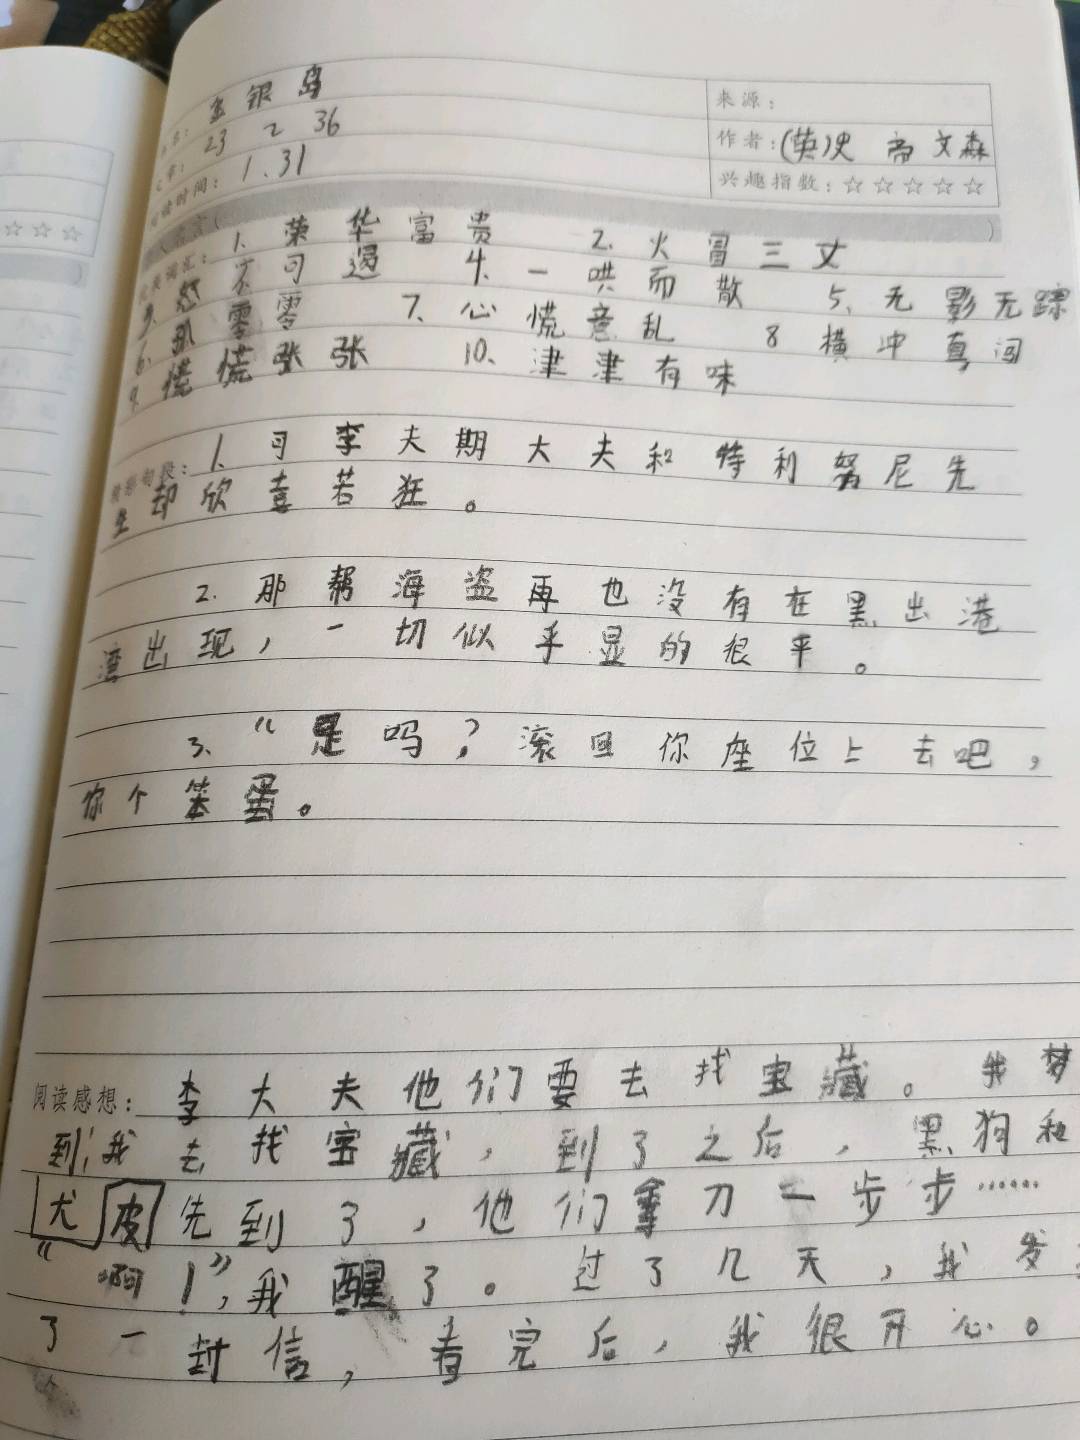 金银岛
来源：
23 2 36
作者：(英)史 帝文森
阅读时间：1.31
兴趣指数：☆☆☆☆☆
☆☆☆
1. 荣华富贵 2. 火冒三丈
不可遏 4. 一哄而散 5. 无影无踪
6. 孤零零 7. 心慌意乱 8 横冲直闯
9. 慌慌张张 10. 津津有味
1. 可李夫期大夫和特利努尼先
生却欣喜若狂。
2. 那帮海盗再也没有在黑出港
湾出现，一切似乎显的很平。
3. “是吗？滚回你座位上去吧，
你个笨蛋。
阅读感想：李大夫他们要去找宝藏。我梦
到，我去找宝藏，到了之后，黑狗和
犬皮先到了，他们拿刀一步步……
“啊！”，我醒了。过了几天，我发
了一封信，看完后，我很开心。